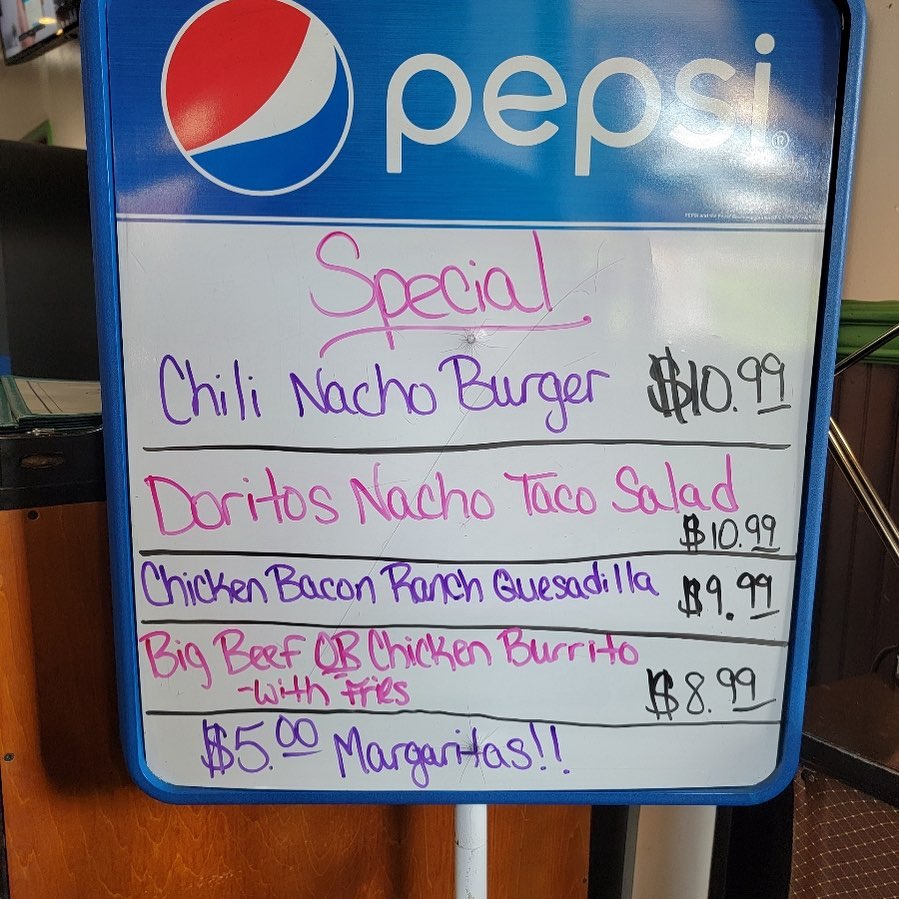 pepsi
Special
Chili Nacho Burger $10.99
Doritos Nacho Taco Salad
$10.99
Chicken Bacon Ranch Quesadilla $9.99
Big Beef OR Chicken Burrito
-with Fries $8.99
$5.00 Margaritas!!